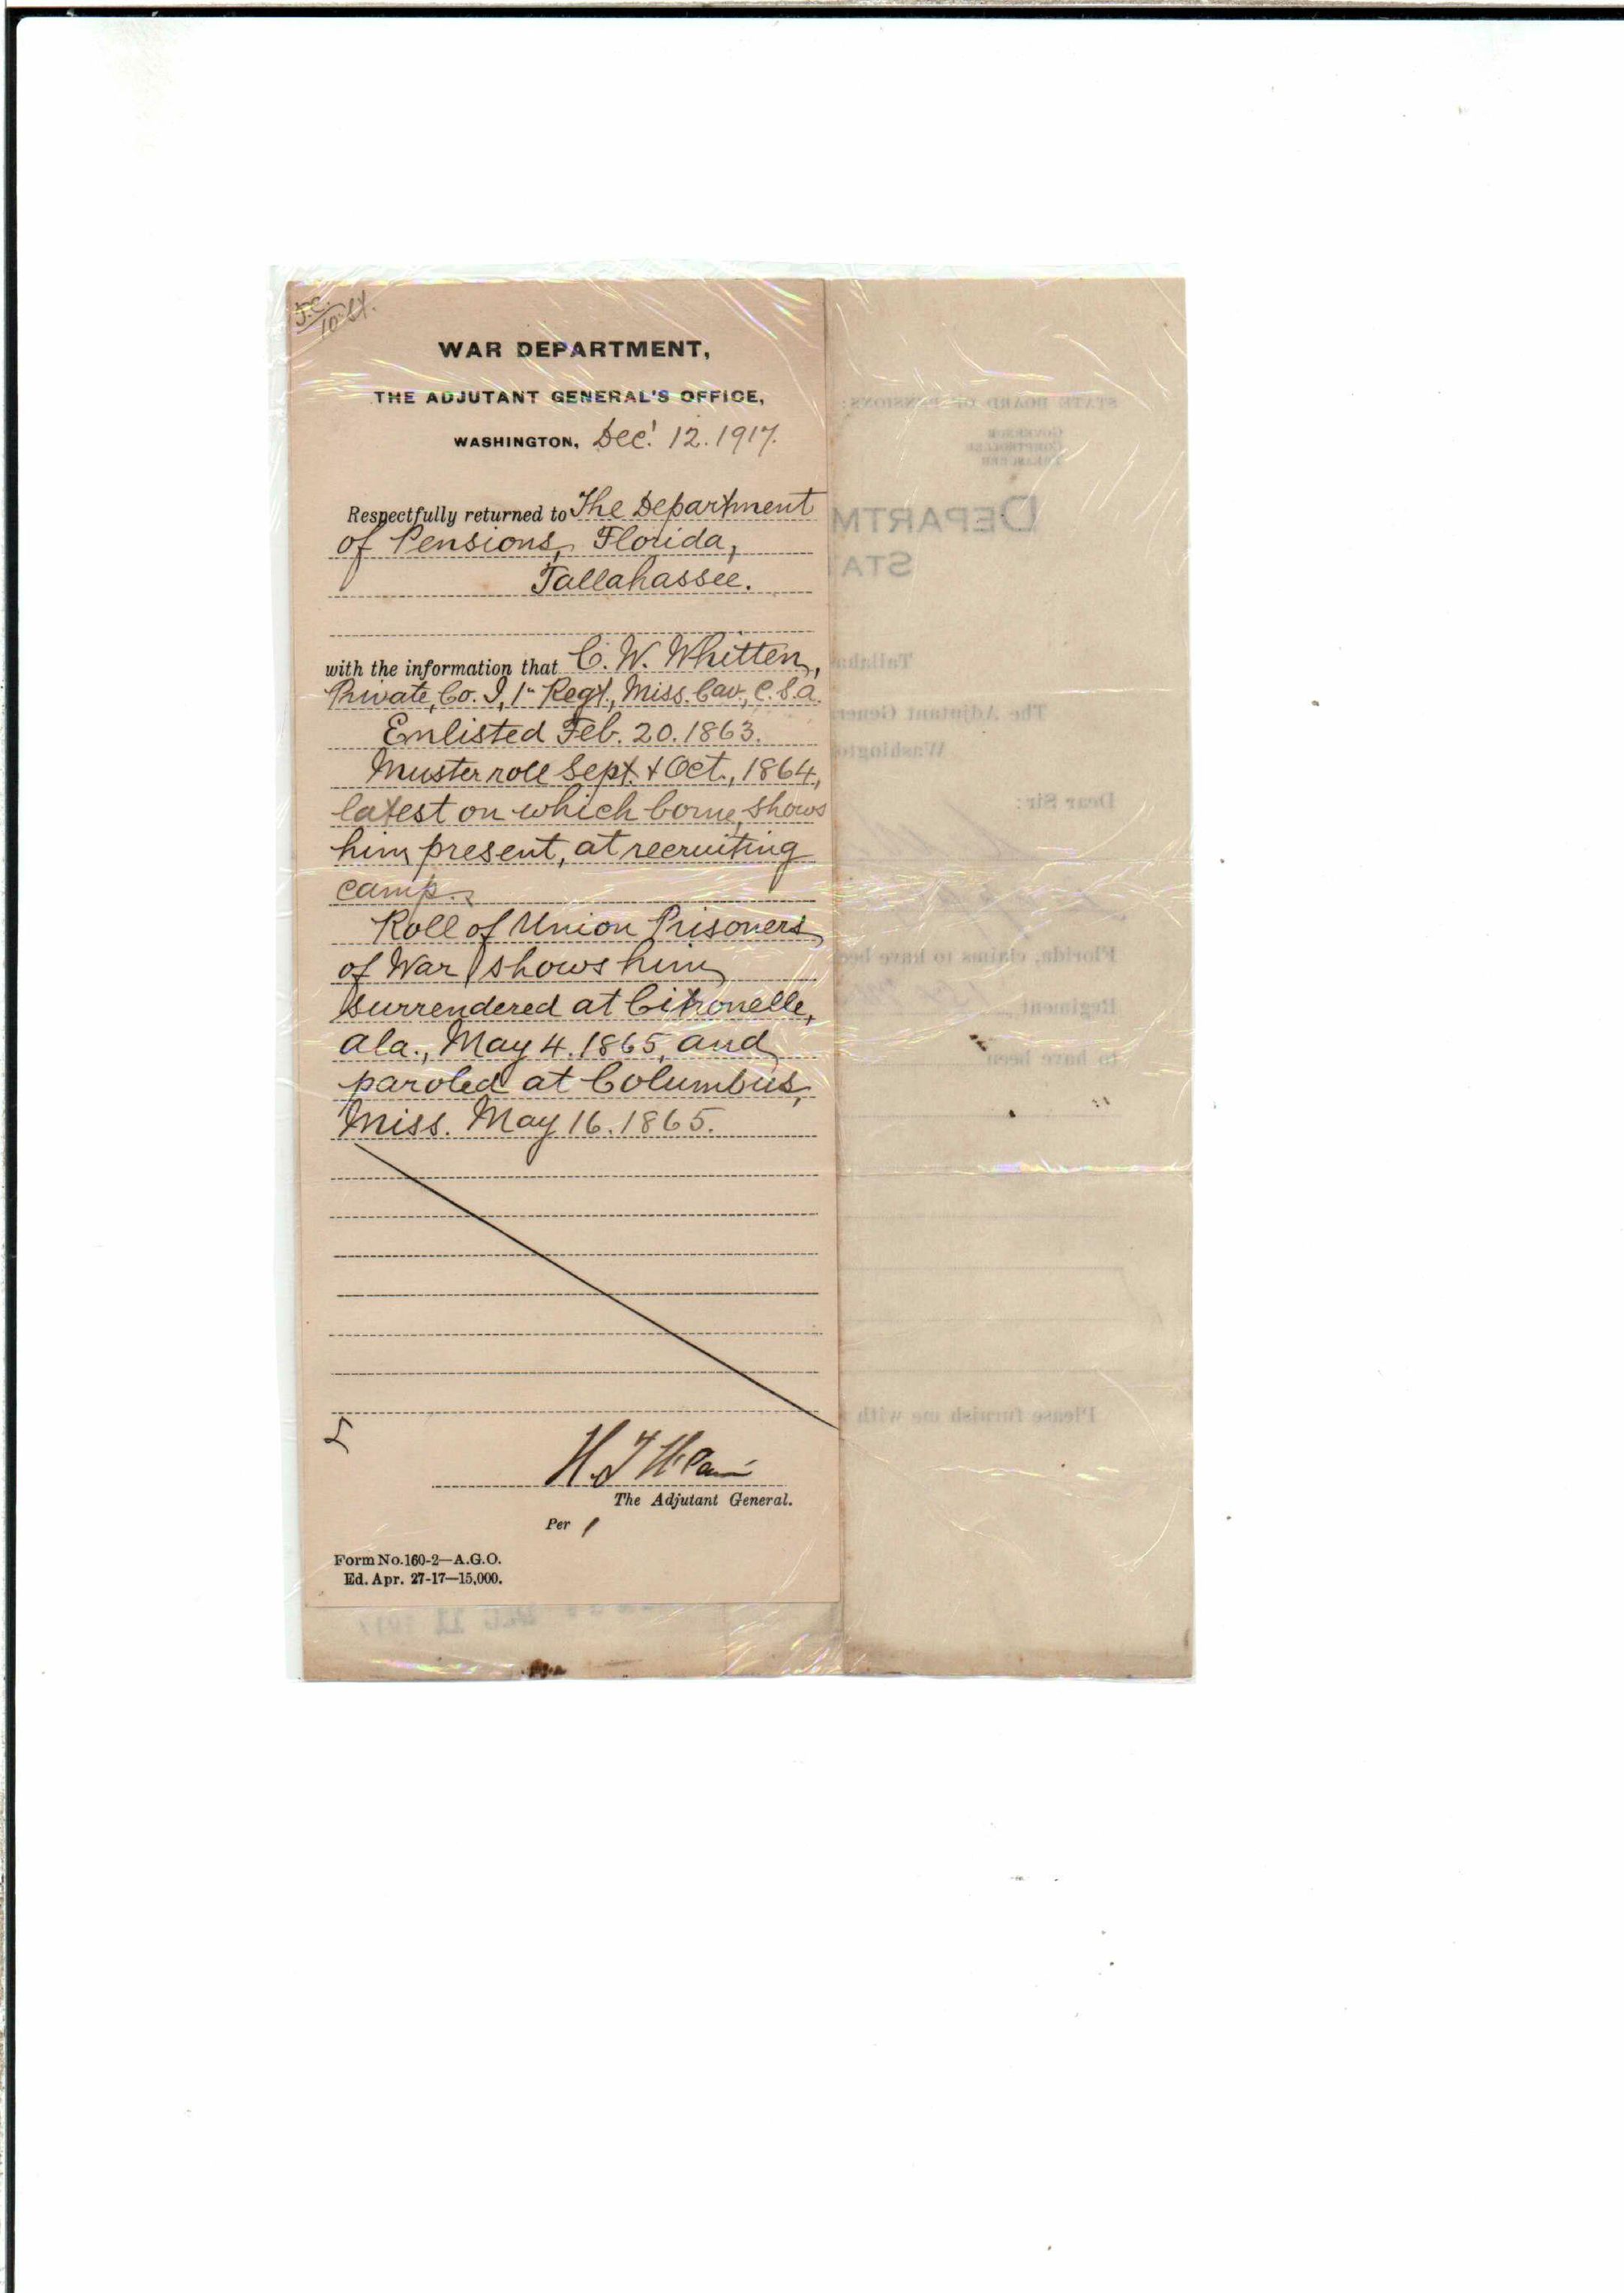 WAR DEPARTMENT,
THE ADJUTANT GENERAL'S OFFICE,
WASHINGTON, Dec! 12.1917.
Respectfully returned to The Department
of Pensions, Florida,
Tallahassee.
with the information that C. W. Whitten,
Private, Co. I, 1" Regt., Miss. Cav., C.S.A.
Enlisted Feb. 20.1863.
Muster roll Sept. & Oct., 1864,
latest on which borne, shows
him present, at recruiting
camp.
Roll of Union Prisoners
of War shows him
surrendered at Citronelle,
Ala., May 4.1865, and
paroled at Columbus,
Miss. May 16.1865.
The Adjutant General.
Per
Form No.160-2—A.G.O.
Ed. Apr. 27-17—15,000.
STATE BOARD OF PENSIONS:
GOVERNOR
COMPTROLLER
TREASURER
DEPARTM
STA
Tallaha
The Adjutant Gener
Washingto
Dear Sir:
Florida, claims to have bee
Regiment
to have been
Please furnish me with
DEC 11 1917